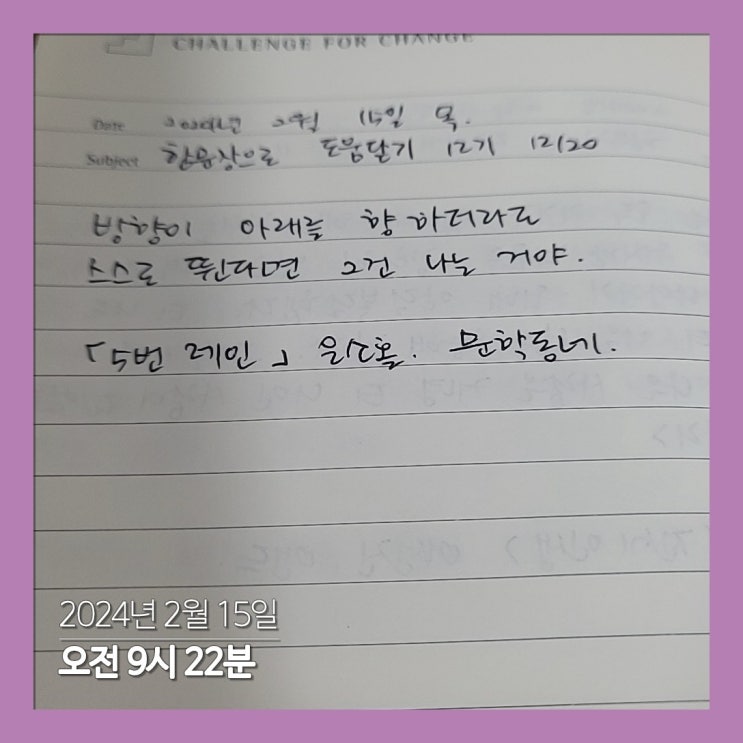 CHALLENGE FOR CHANGE
Date 2024년 2월 15일 목.
Subject 한문장으로 도움닫기 12기 12/20
방향이 아래를 향하더라도
스스로 뛴다면 그건 나는 거야.
「5번 레인」 은소홀. 문학동네.
2024년 2월 15일
오전 9시 22분